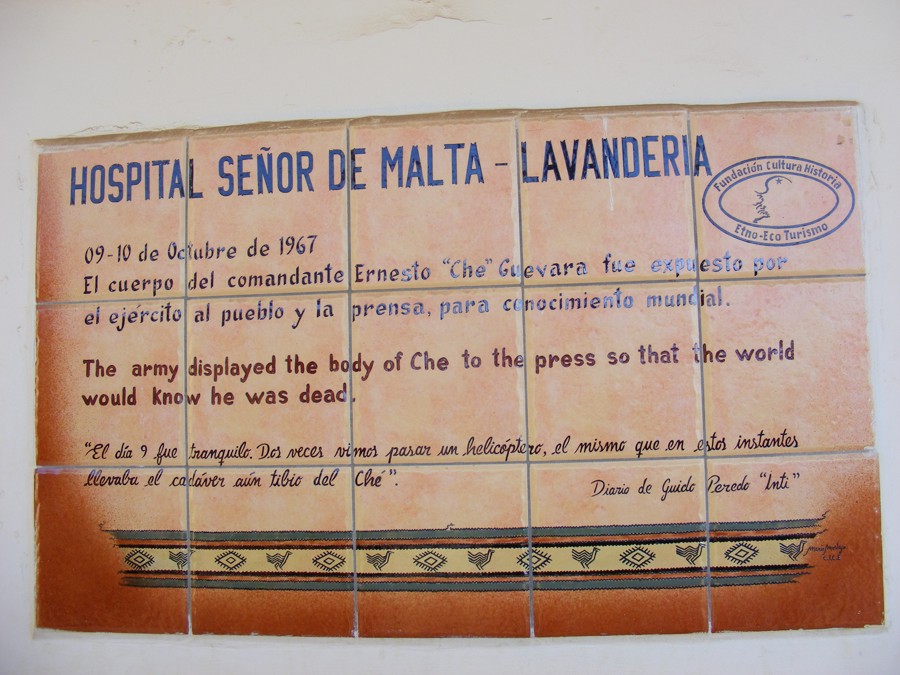 HOSPITAL SEÑOR DE MALTA - LAVANDERIA
Fundación Cultura Historia
Etno-Eco Turismo
09-10 de Octubre de 1967
El cuerpo del comandante Ernesto "Che" Guevara fue expuesto por
el ejército al pueblo y la prensa, para conocimiento mundial.
The army displayed the body of Che to the press so that the world
would know he was dead.
"El día 9 fue tranquilo. Dos veces vimos pasar un helicóptero, el mismo que en estos instantes
llevaba el cadáver aún tibio del Ché".
Diario de Guido Peredo "Inti"